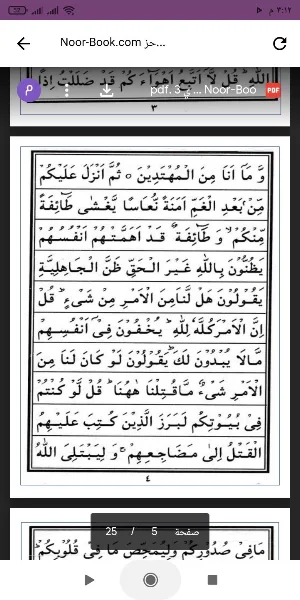 ٣:١٢ م
Noor-Book.com حز...
اللّٰهِ ۙ قُلْ لَّاۤ اَتَّبِعُ اَهْوَآءَ كُمْ قَدْ ضَلَلْتُ اِذًا
pdf. 3 ي... Noor-Boo PDF
٣
وَّ مَاۤ اَنَا مِنَ الْمُهْتَدِيْنَ ○ ثُمَّ اَنْزَلَ عَلَيْكُمْ
مِّنْۢ بَعْدِ الْغَمِّ اَمَنَةً نُّعَاسًا يَّغْشٰى طَآئِفَةً
مِّنْكُمْ ۙ وَ طَآئِفَةٌ قَدْ اَهَمَّتْهُمْ اَنْفُسُهُمْ
يَظُنُّوْنَ بِاللّٰهِ غَيْرَ الْحَقِّ ظَنَّ الْجَاهِلِيَّةِ
يَقُوْلُوْنَ هَلْ لَّنَا مِنَ الْاَمْرِ مِنْ شَىْءٍ ؕ قُلْ
اِنَّ الْاَمْرَ كُلَّهٗ لِلّٰهِ ؕ يُخْفُوْنَ فِىْۤ اَنْفُسِهِمْ
مَّا لَا يُبْدُوْنَ لَكَ ؕ يَقُوْلُوْنَ لَوْ كَانَ لَنَا مِنَ
الْاَمْرِ شَىْءٌ مَّا قُتِلْنَا هٰهُنَا ؕ قُلْ لَّوْ كُنْتُمْ
فِىْ بُيُوْتِكُمْ لَبَرَزَ الَّذِيْنَ كُتِبَ عَلَيْهِمُ
الْقَتْلُ اِلٰى مَضَاجِعِهِمْ ۚ وَ لِيَبْتَلِىَ اللّٰهُ
٤
صفحة 5 / 25
مَا فِىْ صُدُوْرِكُمْ وَلِيُمَحِّصَ مَا فِىْ قُلُوْبِكُمْ ؕ